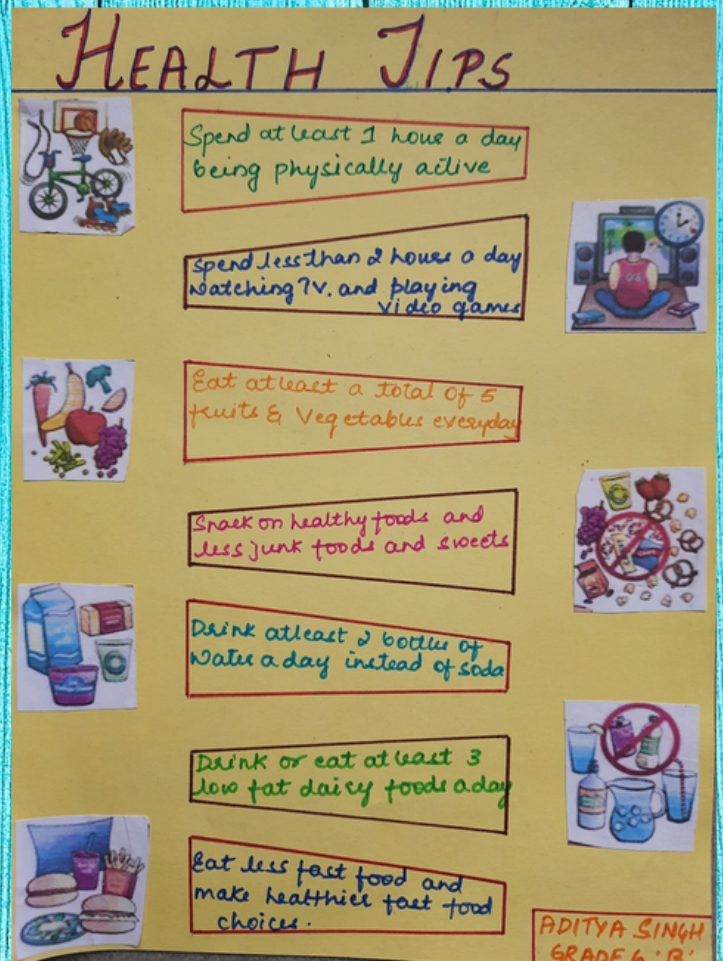 HEALTH TIPS
Spend at least 1 hour a day
being physically active
Spend less than 2 hours a day
Watching TV. and playing
video games
Eat at least a total of 5
fruits & Vegetables everyday
Snack on healthy foods and
less junk foods and sweets
Drink atleast 2 bottles of
Water a day instead of soda
Drink or eat at least 3
low fat dairy foods a day
Eat less fast food and
make healthier fast food
choices.
ADITYA SINGH
GRADE 6 'B'